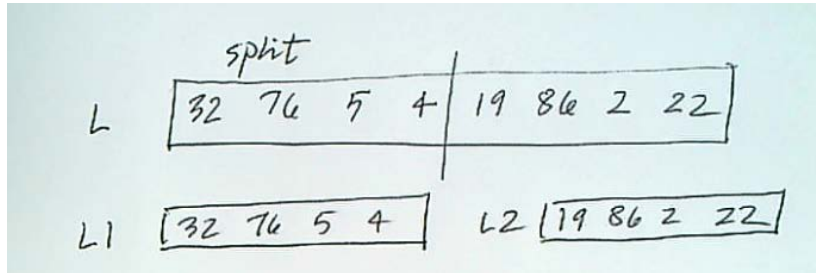 split
L 32 76 5 4 19 86 2 22
L1 32 76 5 4 L2 19 86 2 22